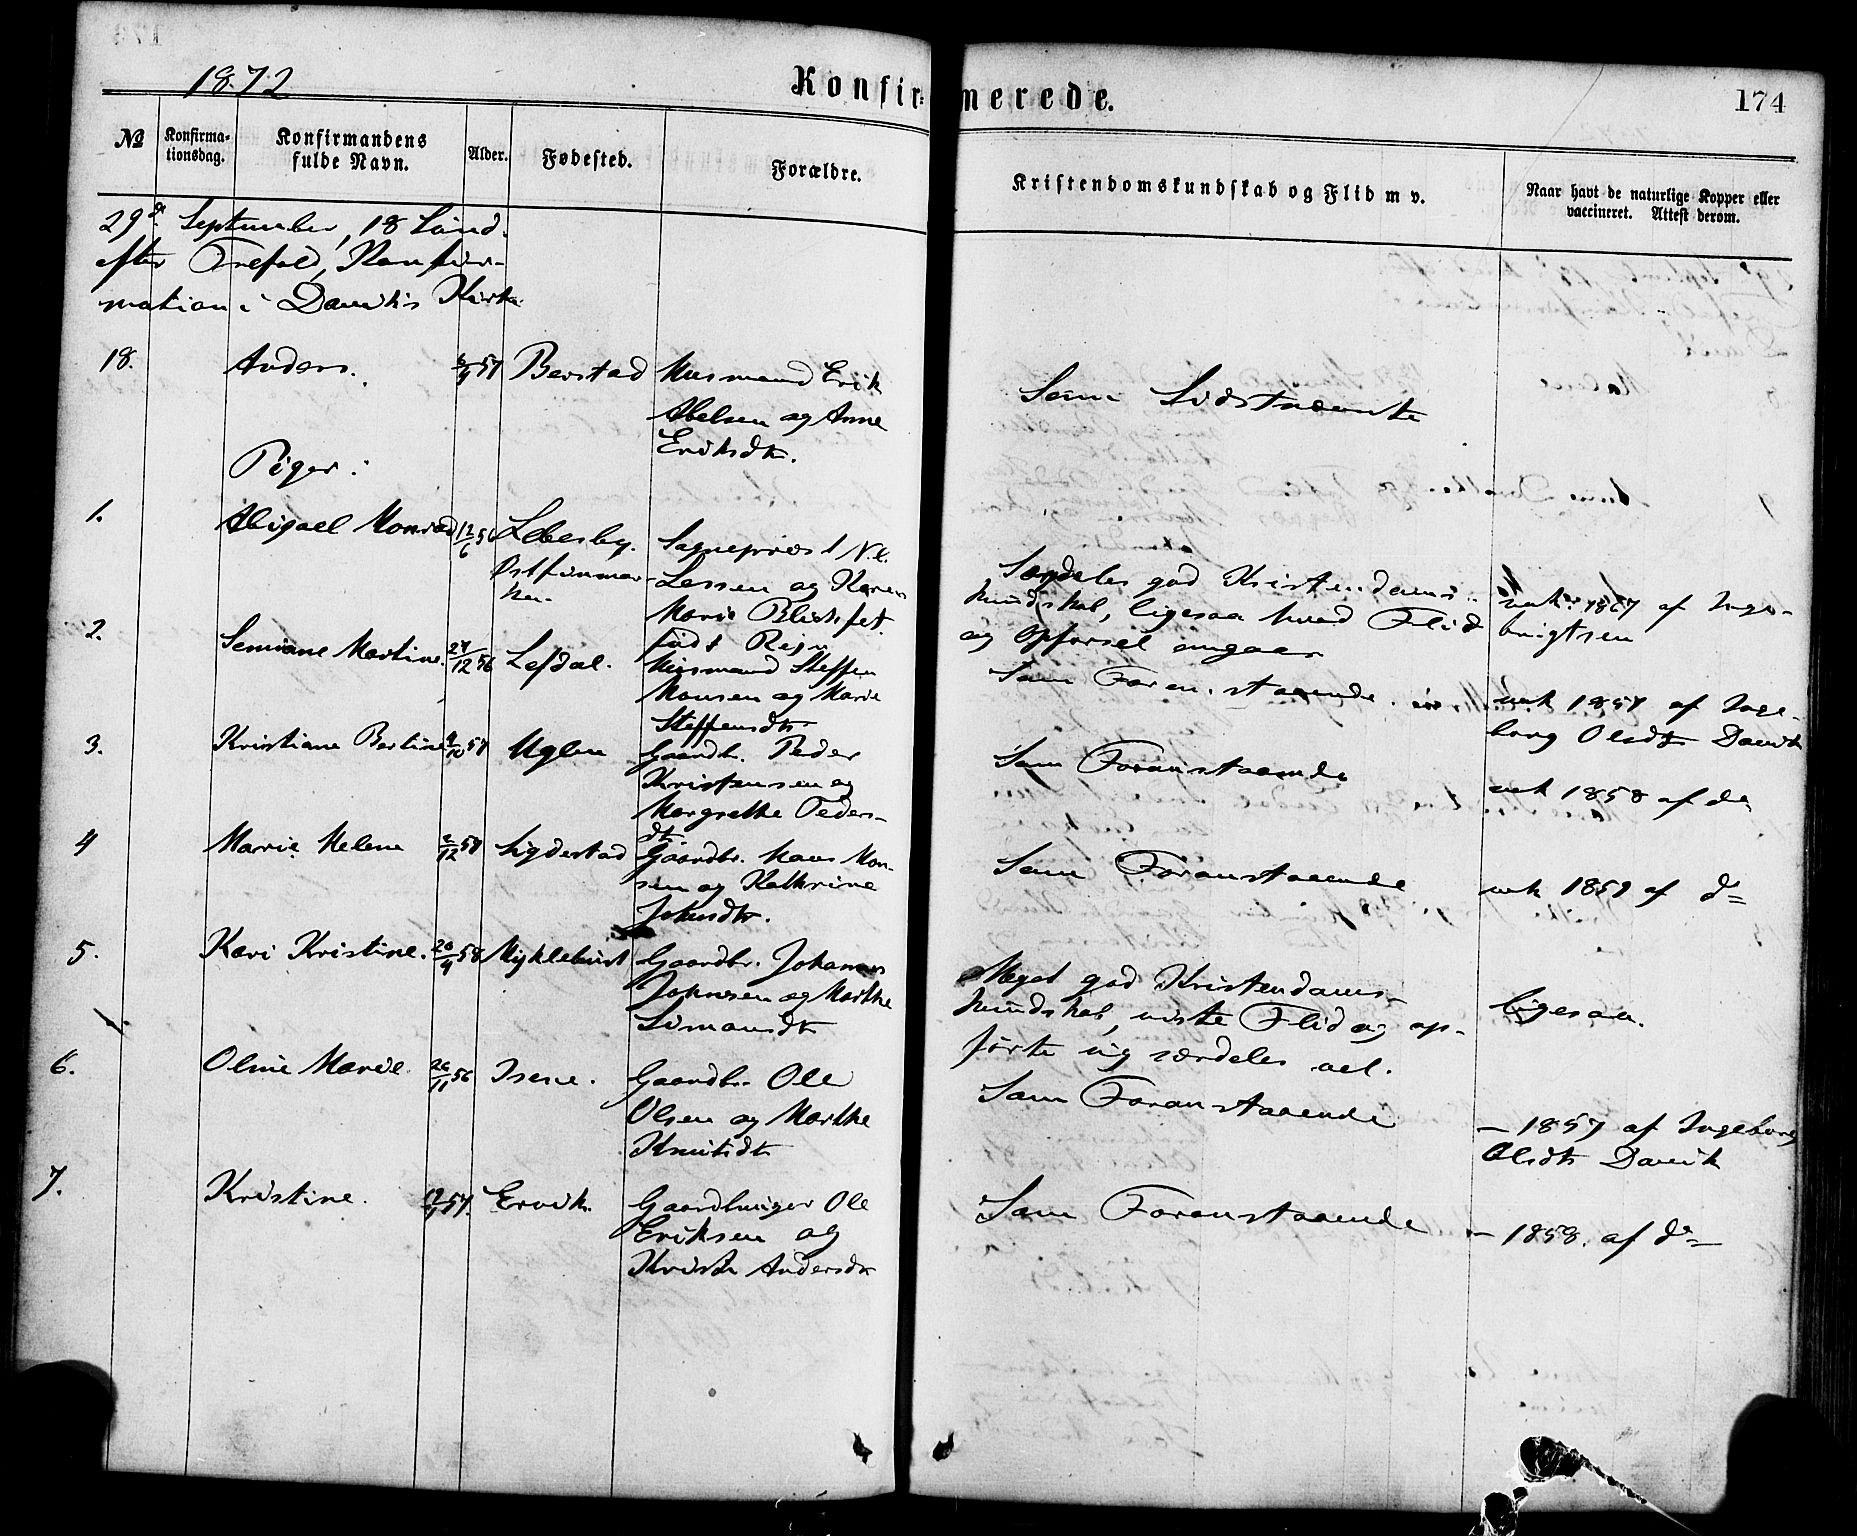 1872
Konfirmerede.
174
№
Konfirma-
tionsdag.
Konfirmandens
fulde Navn.
Alder.
Fødested.
Forældre.
Kristendomskundskab og Flid m v.
Naar havt de naturlige Kopper eller
vaccineret. Attest derom.
29de September, 18 Sønd.
efter Trefold, Konfir-
mation i Daviks Kirke
18.
Anders.
57
Berstad
Husmand Erik
Abelsen og Anne
Eriksdtr.
Som Sidstnævnte
Piger:
1.
Abigael Monrad
12/6 56
Lebesby.
Østfinmar-
ken.
Sognepræst N. L.
Lessen og Karen
Marie
født
Særdeles god Kristendoms-
kundskab, ligesaa hvad Flid
og Opførsel angaar
vak. 1867 af Inge-
brigtsen
2.
Martine.
27/12 56
Lefdal.
Husmand Steffen
Monsen og Marie
Steffensdtr
Som Foranstaaende.
vak 1857 af Inge-
borg Olsdtr Davik
3.
Kristiane Bertine
57
Uglen
Gaardbr. Peder
Kristensen og
Margrethe Peders-
dtr.
Som Foranstaaende
vak 1858 af do
4
Marie Helene
2/12 57
Sigdestad
Gaardbr. Hans Mon-
sen og Kathrine
Johnsdtr.
Som Foranstaaende
vak 1859 af do
5.
Kari Kristine.
20/4 58
Myklebust
Gaardbr. Johannes
Johnsen og Marthe
Simonsdtr
Meget god Kristendoms-
kundskab, viste Flid og op-
førte sig særdeles vel.
ligesaa.
6.
Oline Marie.
26/11 56
Isene.
Gaardbr. Ole
Olsen og Marthe
Knutsdtr
Som Foranstaaende
— 1857 af Ingeborg
Olsdtr Davik
7.
Kristine.
57.
Ervik.
Gaardbruger Ole
Eriksen og
Kristi Andersdtr
Som Foranstaaende
— 1858. af do